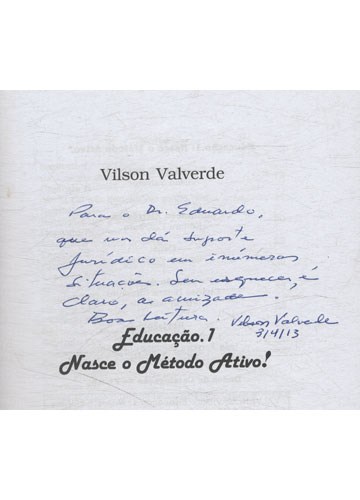 Vilson Valverde
Para o Dr. Eduardo,
que nos dá suporte
jurídico em inúmeras
situações. Sem esquecer, é
claro, a amizade.
Boa Leitura. Vilson Valverde
3/4/13
Educação.1
Nasce o Método Ativo!